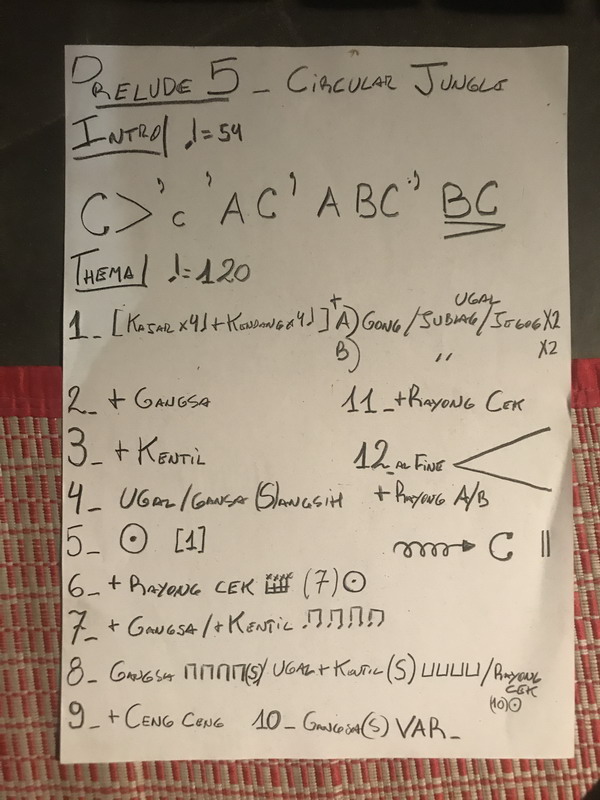 PRELUDE 5 _ CIRCULAR JUNGLE
INTRO/ ♩=54
C> ' c ' A C ' A B C ' BC
THEMA/ ♩=120
1_ [KAJAR x4♩+KENDANG x4♩] + A) GONG/JUBLAG/UGAL/JEGOG X2
B) ,, X2
2_ + GANGSA
3_ + KENTIL
4_ UGAL/GANGSA (S)ANGSIH
5_ ⊙ [1]
6_ + RAYONG CEK (7) ⊙
7_ + GANGSA/+KENTIL
8_ GANGSA (S)/UGAL+KENTIL (S) /RAYONG CEK
(10)⊙
9_ + CENG CENG 10_ GANGSA(S) VAR_
11_ +RAYONG CEK
12_ AL FINE <
+ RAYONG A/B
C ||